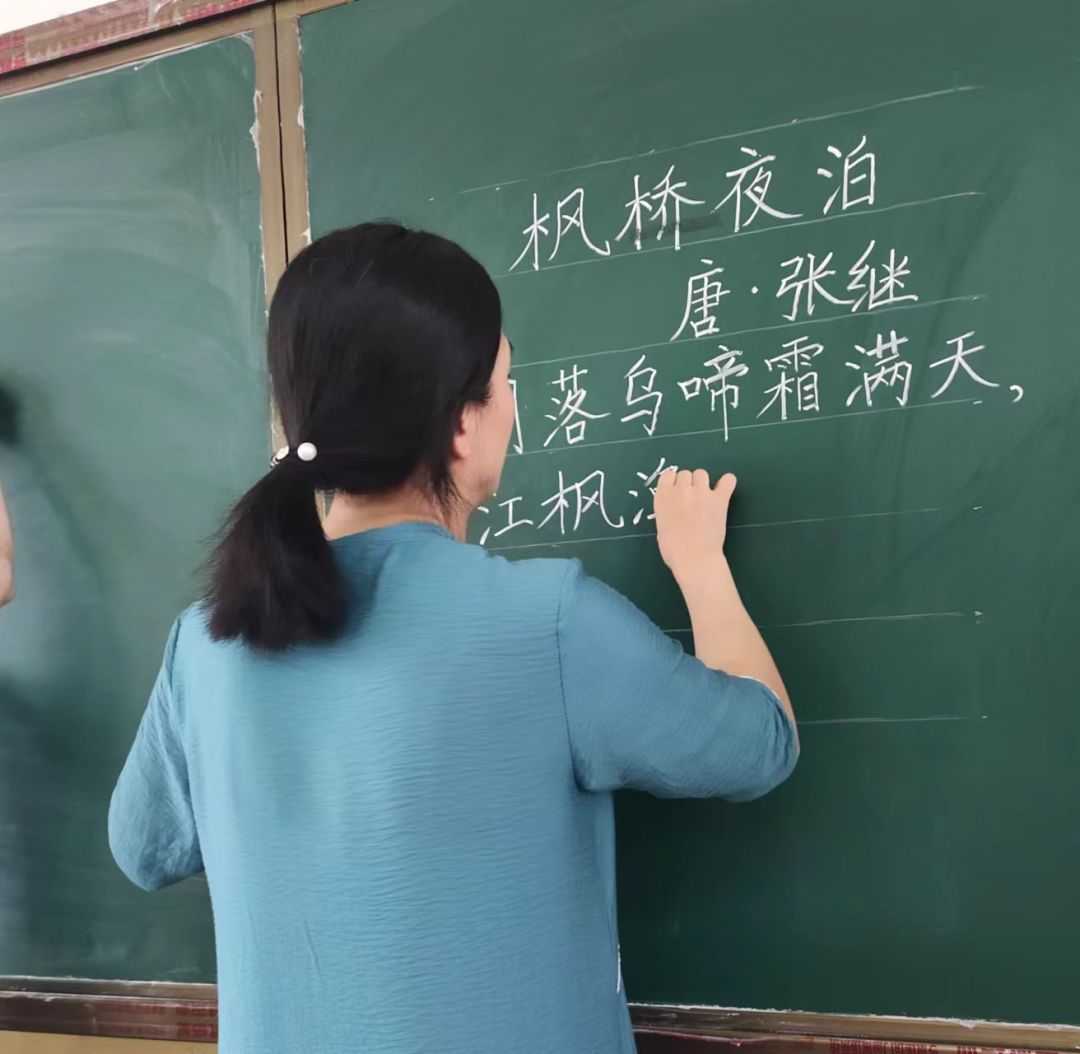 枫桥夜泊
唐·张继
落乌啼霜满天，
江枫